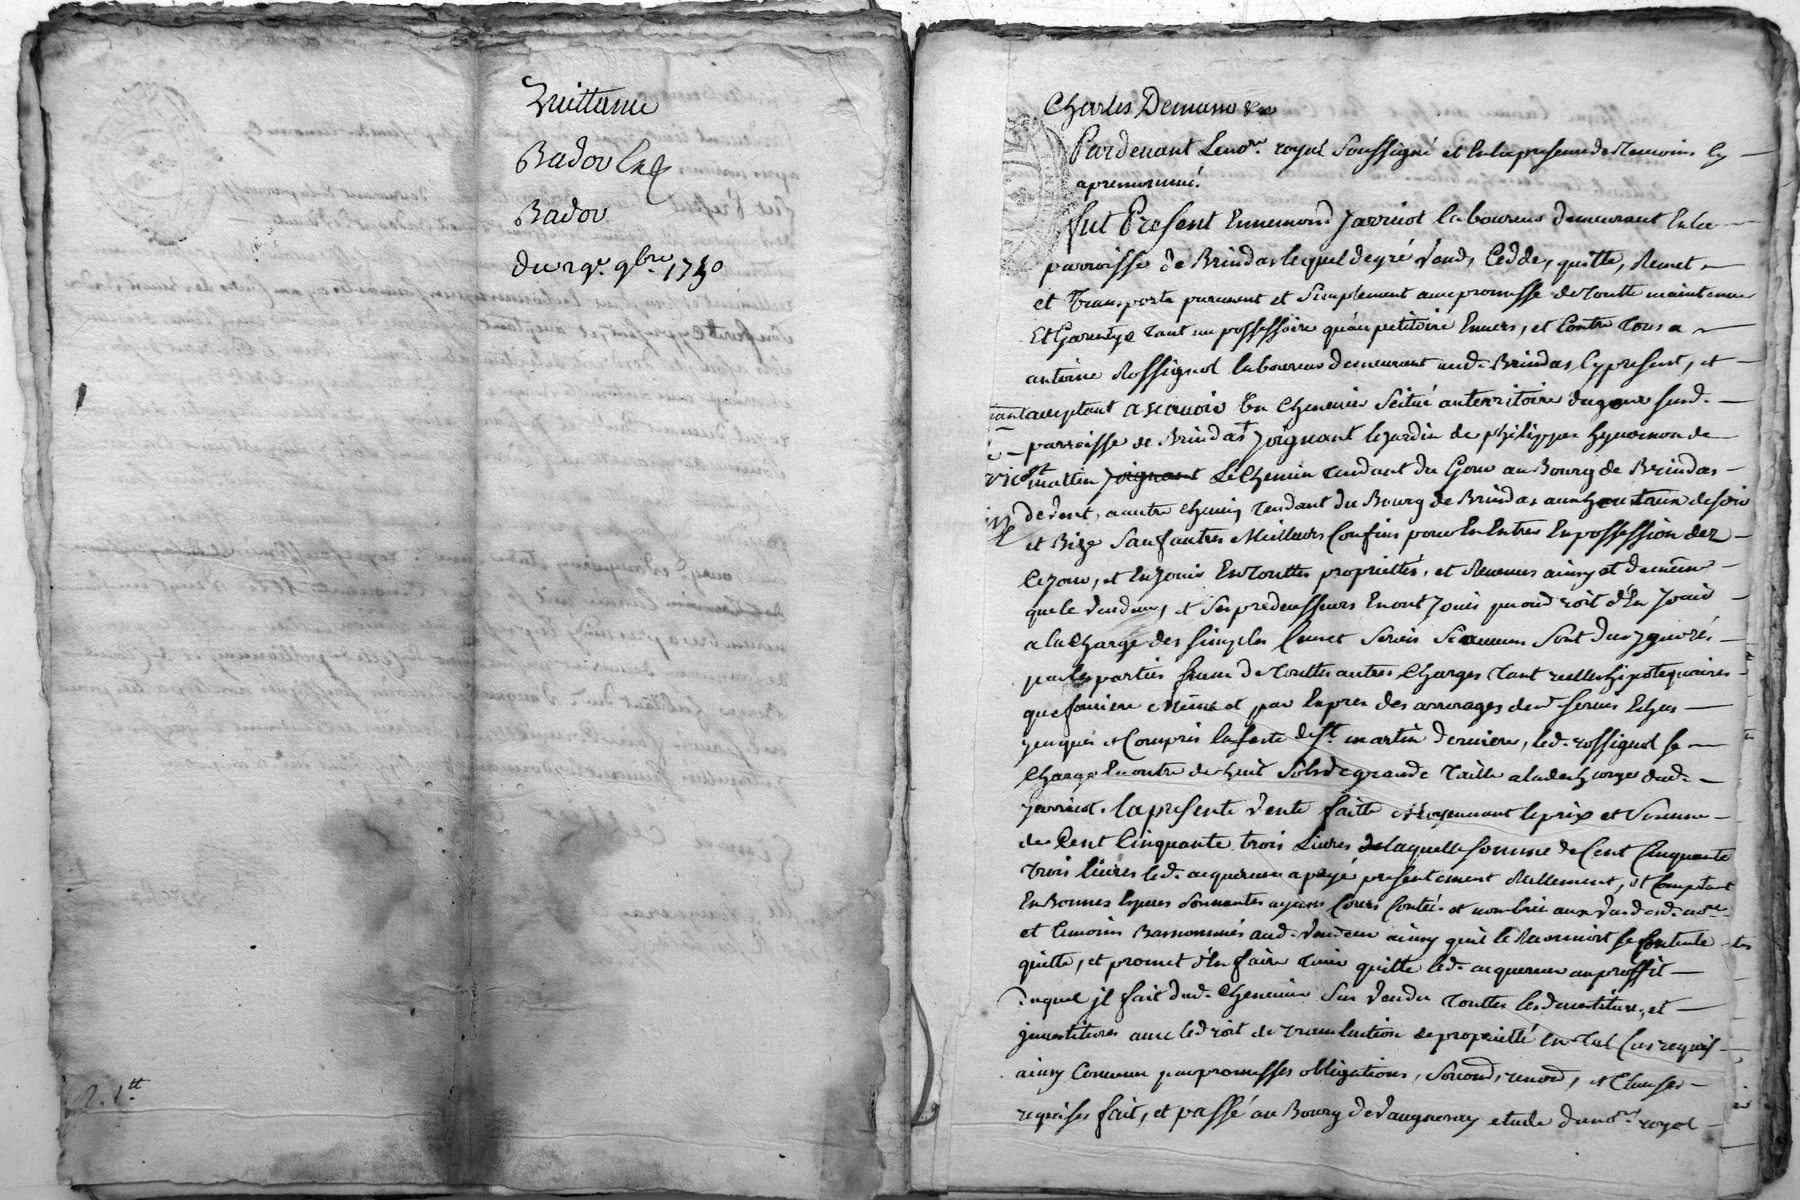 Quittance
Badou
Badou
du 29e. 9bre. 1750
R. 1tt
Charles Demann
Pardevant Le nore. royal Soussigné et En la presence des temoins Cy
apres nommé.
fut Present Ennemond Jarricot laboureur demeurant En la
parroisse de Brindas lequel de gré Vand, Cedde, quitte, Remet
et Transporte purement et Simplement avec promesse de toutte maintenue
Et Garentye tant au possessoire qu'au petitoire Envers, et Contre tous a
antoine Rossignol laboureur demeurant aud. Brindas Cy present, et
acceptant a scavoir Un Chenevier Scitué au territoire du gour sus d.
parroisse de Brindas Joignant le jardin de philippe de
mattin Joignant Le Chemin tendant du Gour au Bourg de Brindas
de Vent, a autre chemin tendant du Bourg de Brindas aux de soir
et Bize Sauf autres Meilleurs Confins pour En Entrer En possession dez
Ce Jour, et En Jouir En touttes proprietés, et Revenus ainsy et de même
que le Vendeur, et Ses predecesseurs En ont Jouis pu ou droit d'En Jouir
a la Charge des Simples Cens et Servis Si aucuns Sont dus ignorés
par les parties franc de touttes autres Charges tant reelles hipotequaires
que fonciere Même et par Exprès des arrerages des d. Servis Echus
jeuques et Compris la feste de St. martin derniere, led. rossignol Se
Charge En outre de huit Sols de grande taille a la decharge dud.
Jarricot. la presente Vente faitte Moyennant le prix et Somme
de Cent Cinquante trois Livres de laquelle Somme de Cent Cinquante
trois livres led. acquereur a payé presentement Reellement, et Comptant
En Bonnes Especes Sonnantes ayant Cours Contée et nombrée aux Vus desd. nore.
et temoins aud. Vendeur ainsy qu'il le Reconnoit Se Contente
quitte, et promet d'En faire tenir quitte led. acquereur au proffit
duquel jl fait dud. Chenevier Sus Vendu touttes les devestiture, et
jnvestitures avec le droit de translation de proprietté En tel Cas requis
ainsy Convenu par promesses obligations, Soumd, renond, et Clauses
requises fait, et passé au Bourg de Vaugneray etude du nore. royal